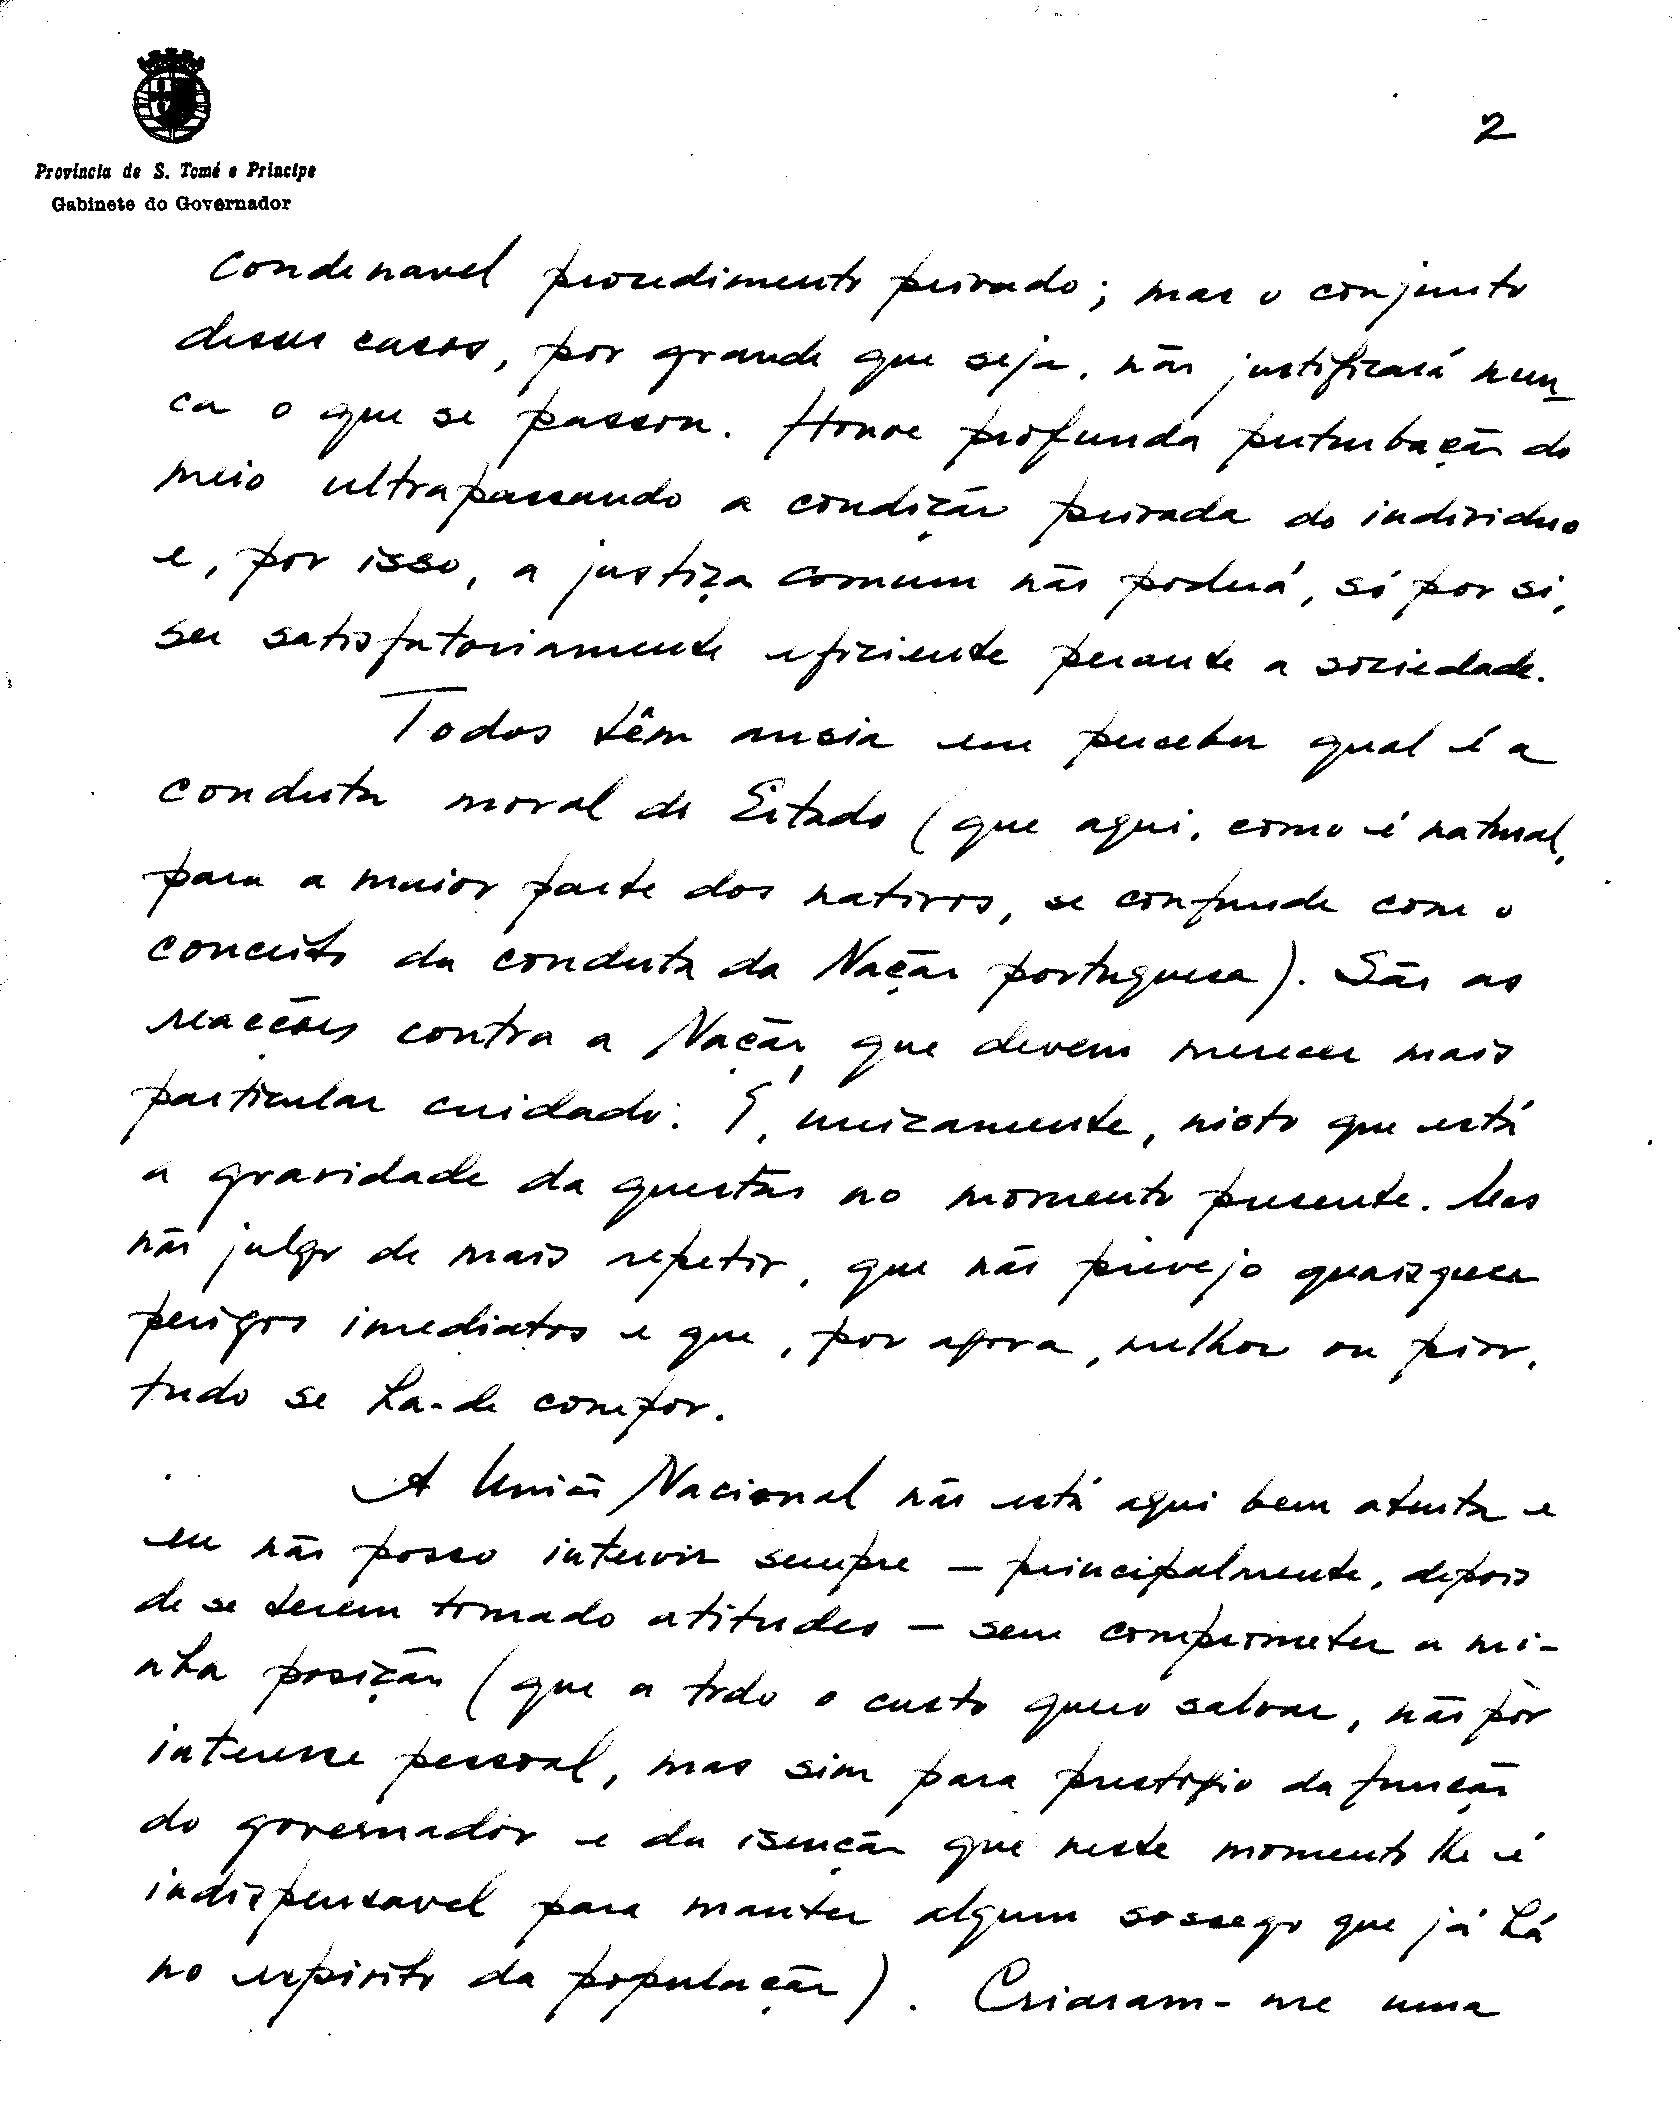 2
Província de S. Tomé e Príncipe
Gabinete do Governador
condenavel procedimento privado; mas o conjunto
desses casos, por grande que seja, não justificará nun-
ca o que se passou. Houve profunda perturbação do
meio ultrapassando a condição privada do individuo
e, por isso, a justiça comum não poderá, só por si,
ser satisfatoriamente eficiente perante a sociedade.
Todos têm ansia em perceber qual é a
conduta moral do Estado (que aqui, como é natural,
para a maior parte dos nativos, se confunde com o
conceito da conduta da Nação portuguesa). São as
reacções contra a Nação, que devem merecer mais
particular cuidado. É, unicamente, nisto que está
a gravidade da questão no momento presente. Mas
não julgo de mais repetir, que não prevejo quaisquer
perigos imediatos e que, por agora, melhor ou pior,
tudo se ha-de compor.
A União Nacional não está aqui bem atenta e
eu não posso intervir sempre – principalmente, depois
de se terem tomado atitudes – sem comprometer a mi-
nha posição (que a todo o custo quero salvar, não por
interesse pessoal, mas sim para prestigio da função
do governador e da isenção que neste momento lhe é
indispensavel para manter algum sossego que já há
no espirito da população). Criaram-me uma